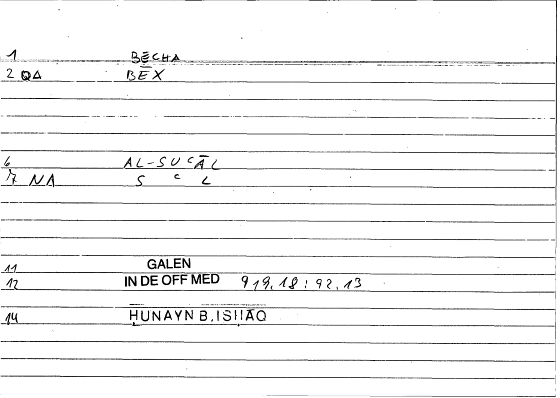 1 BĒCHA
2 QΔ BĒX
6 AL-SUᶜĀL
7 NA S ᶜ L
11 GALEN
12 IN DE OFF MED 919,18 : 92,13
14 HUNAYN B. ISHĀQ